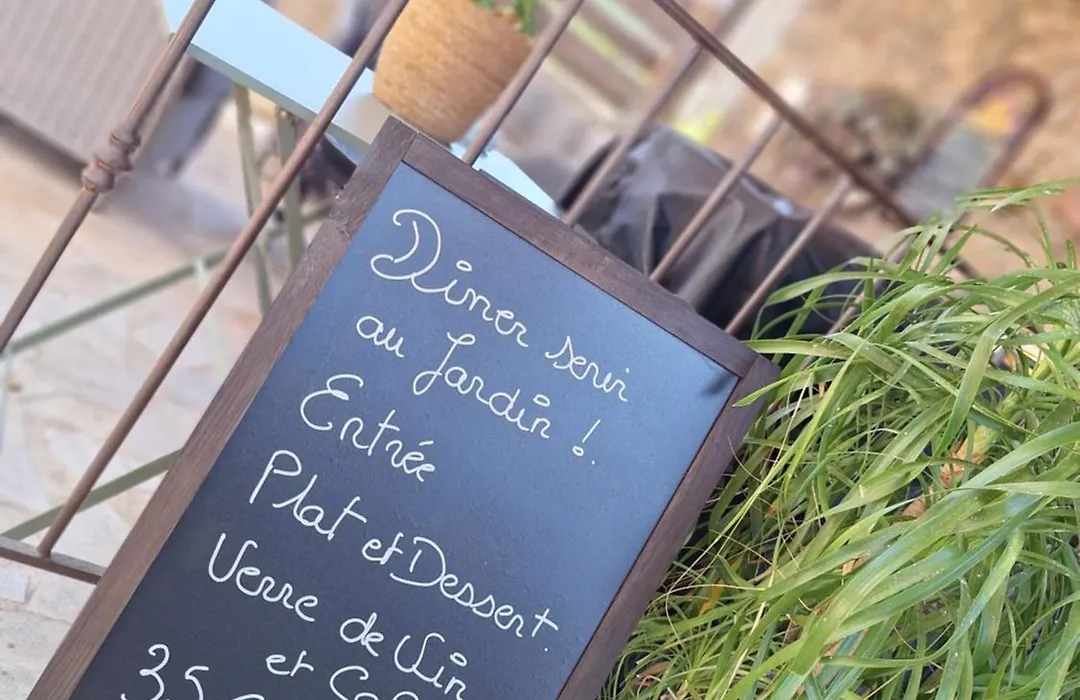 Diner servi
au Jardin !
Entrée
Plat et Dessert
Verre de Vin
et
35